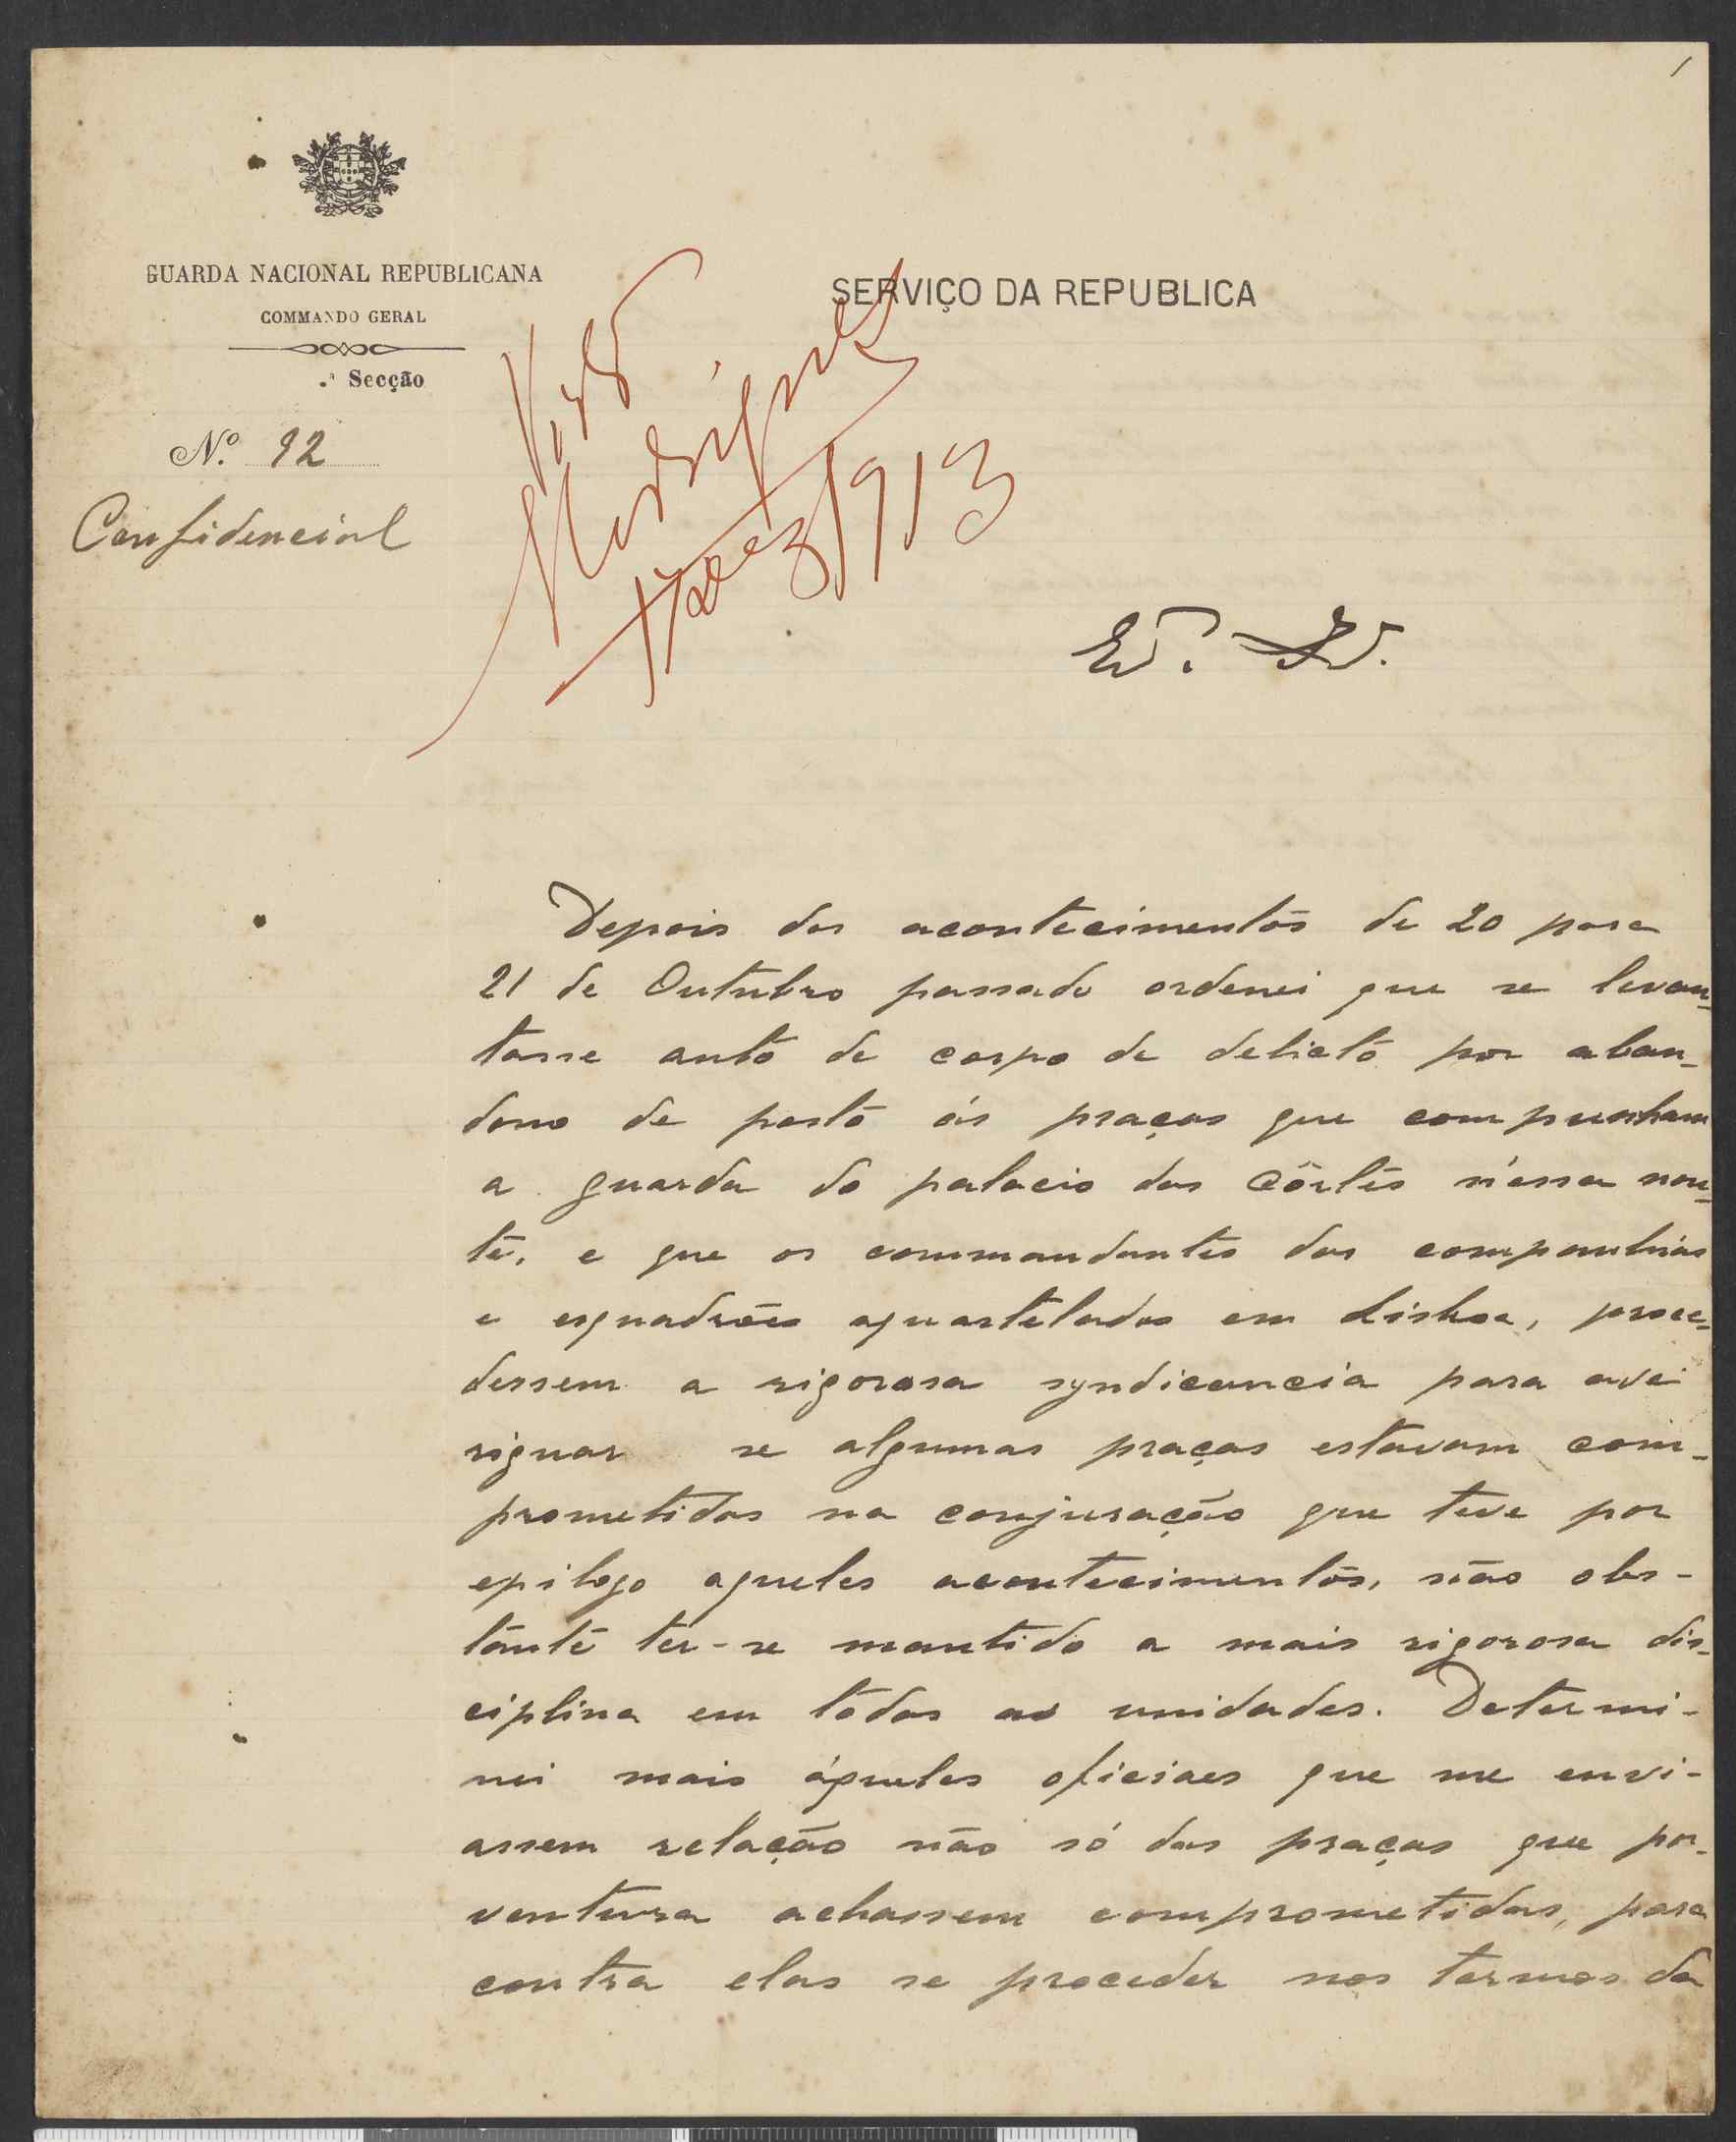 1
GUARDA NACIONAL REPUBLICANA
COMMANDO GERAL
.ª Secção
Nº. 92
Confidencial
SERVIÇO DA REPUBLICA
Visto
Rodrigues
1913
Depois dos acontecimentos de 20 para
21 de Outubro passado ordenei que se levan-
tasse auto de corpo de delicto por aban-
dono de posto ás praças que compunham
a guarda do palacio das Côrtes n'essa nou-
te, e que os commandantes das companhias
e esquadrões aquartelados em Lisboa, proce-
dessem a rigorosa syndicancia para ave-
riguar se algumas praças estavam com-
prometidas na conjuração que teve por
epilogo aqueles acontecimentos, não obs-
tante ter-se mantido a mais rigorosa dis-
ciplina em todas as unidades. Determi-
nei mais áqueles oficiaes que me envi-
assem relação não só das praças que por-
ventura achassem comprometidas, para
contra elas se proceder nos termos da